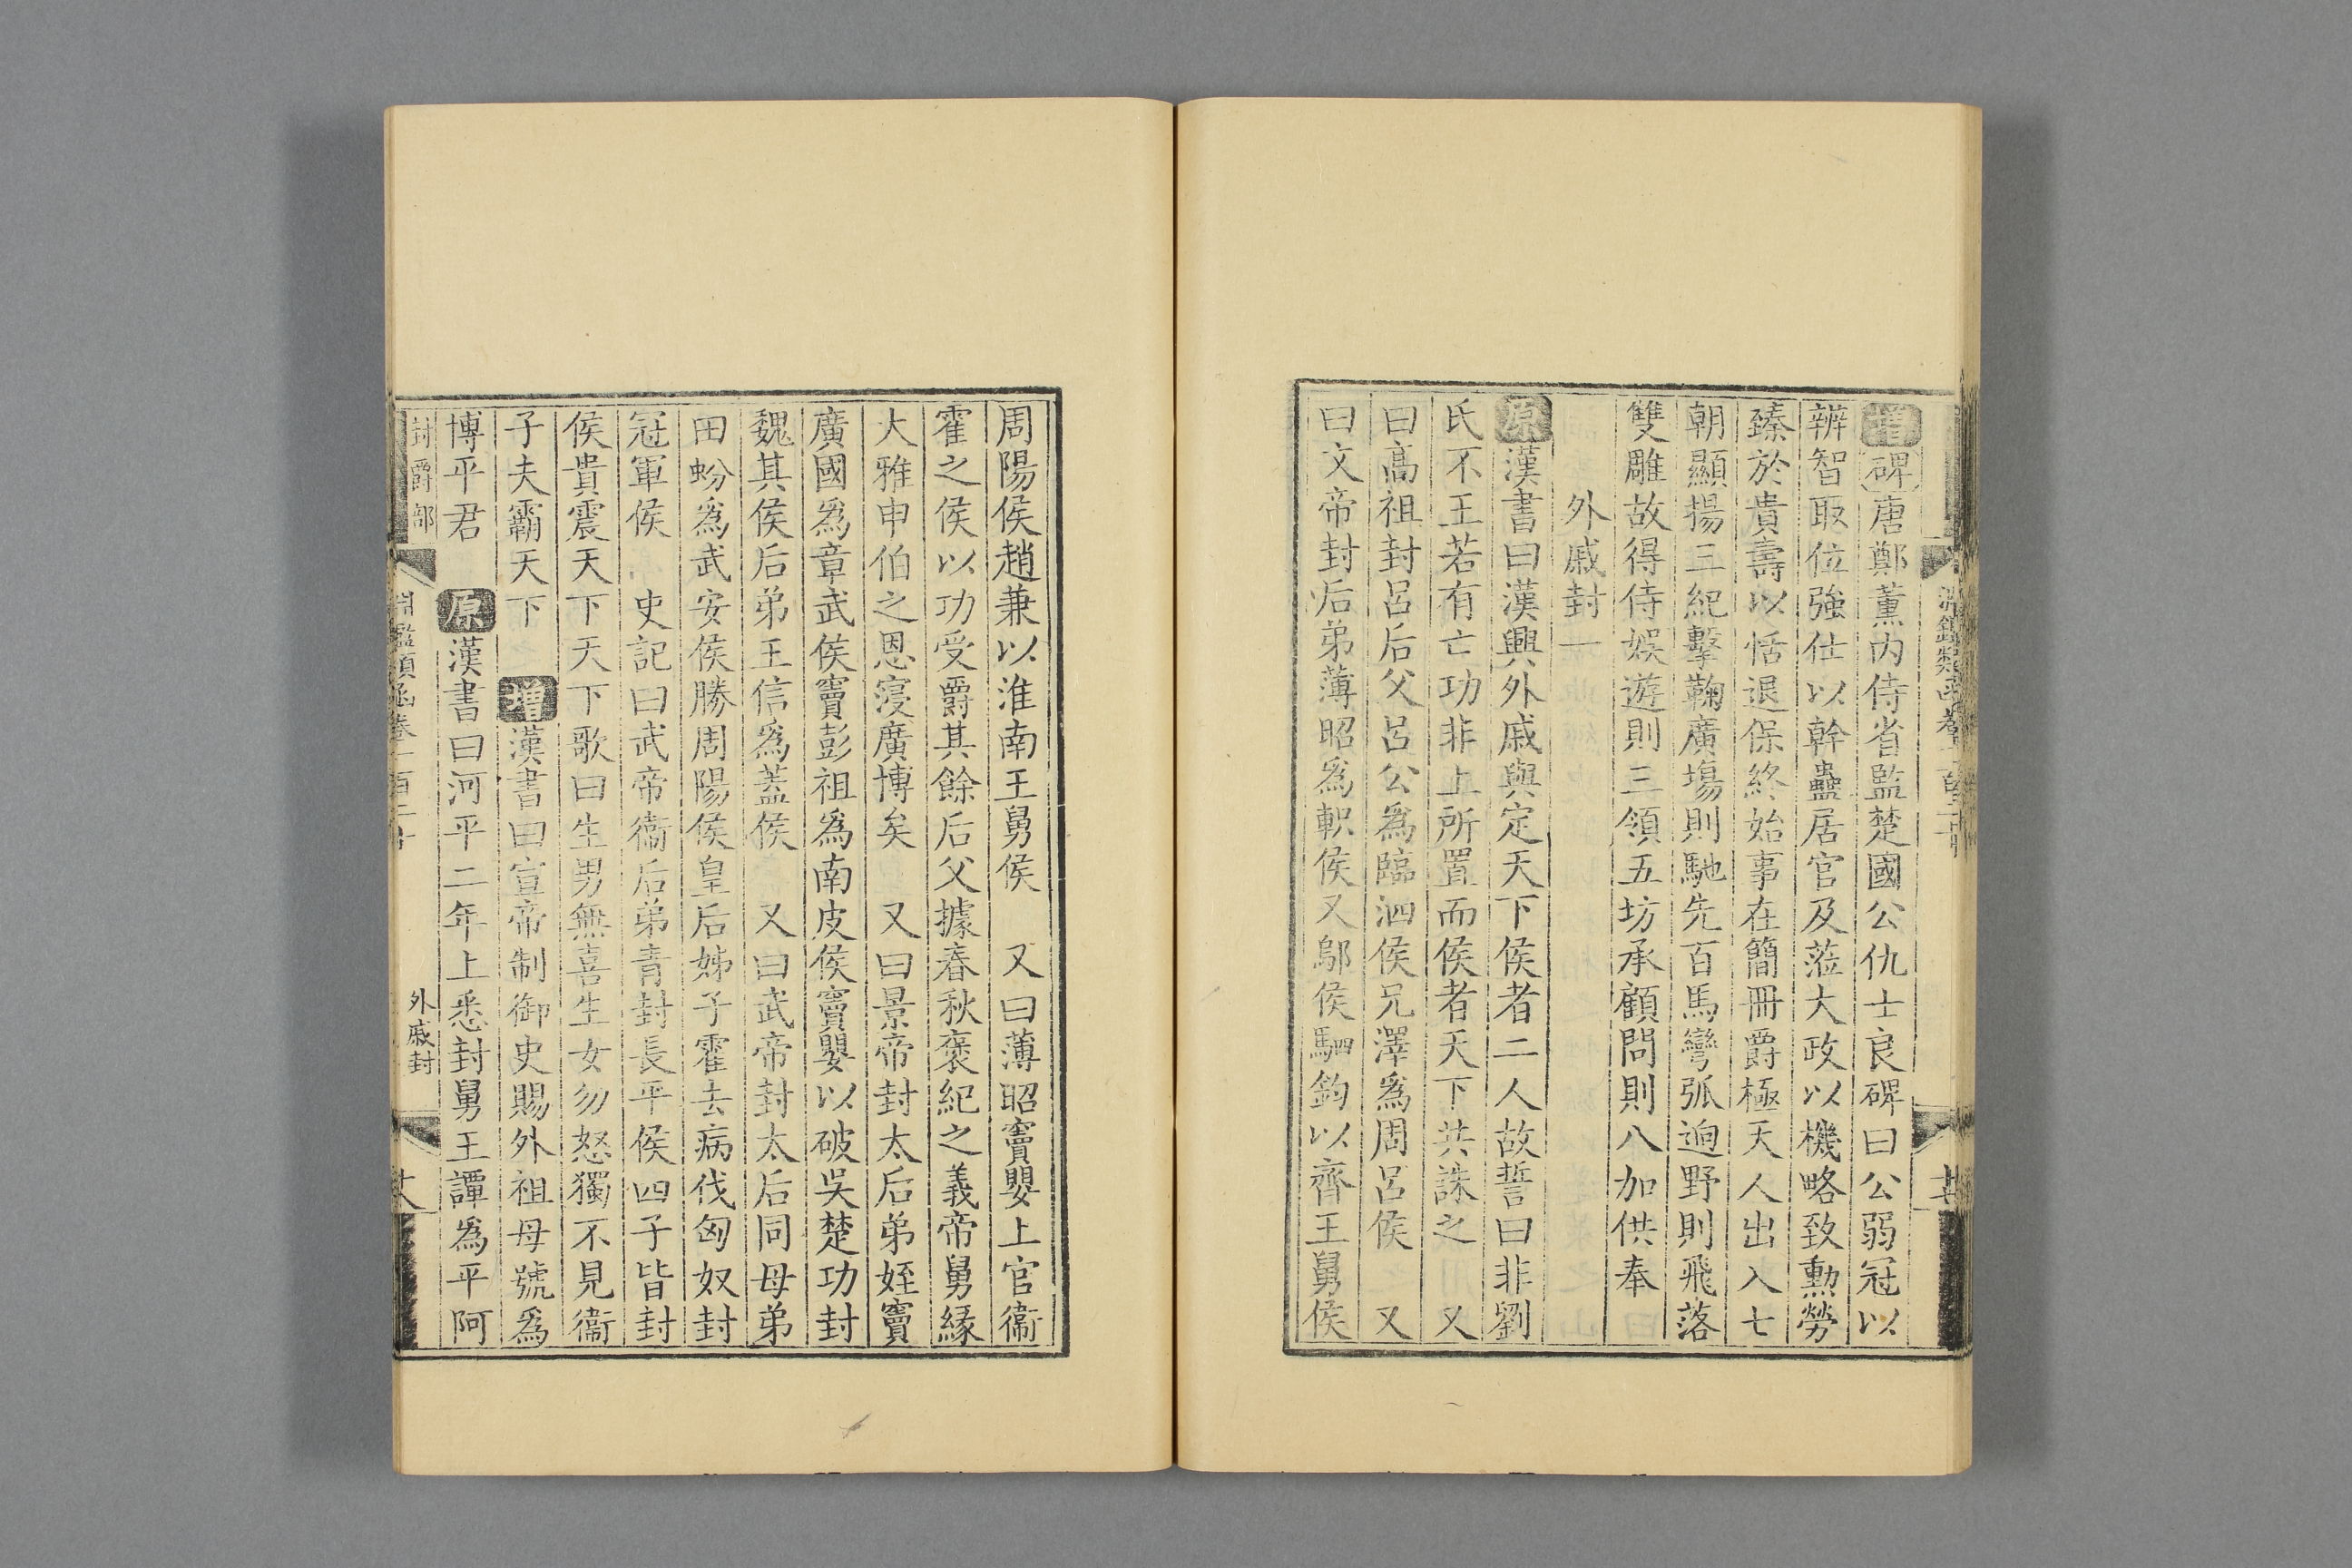 增碑唐鄭薰内侍省監楚國公仇士良碑曰公弱冠以
辨智取位強仕以幹蠱居官及蒞大政以機略致勳勞
臻於貴壽以恬退保終始事在簡冊爵極天人出入七
朝顯揚三紀擊鞠廣塲則馳先百馬彎弧逈野則飛落
雙雕故得侍娱遊則三領五坊承顧問則八加供奉
外戚封一
原漢書曰漢興外戚與定天下侯者二人故誓曰非劉
氏不王若有亡功非上所置而侯者天下共誅之 又
曰高祖封呂后父呂公爲臨泗侯兄澤爲周呂侯 又
曰文帝封后弟薄昭爲軹侯又鄔侯駟鈞以齊王舅侯
周陽侯趙兼以淮南王舅侯 又曰薄昭竇嬰上官衞
霍之侯以功受爵其餘后父據春秋褒紀之義帝舅緣
大雅申伯之恩寖廣博矣 又曰景帝封太后弟姪竇
廣國爲章武侯竇彭祖爲南皮侯竇嬰以破吳楚功封
魏其侯后弟王信爲蓋侯 又曰武帝封太后同母弟
田蚡爲武安侯勝周陽侯皇后姊子霍去病伐匈奴封
冠軍侯 史記曰武帝衞后弟青封長平侯四子皆封
侯貴震天下天下歌曰生男無喜生女勿怒獨不見衞
子夫霸天下 增漢書曰宣帝制御史賜外祖母號爲
博平君 原漢書曰河平二年上悉封舅王譚爲平阿
封爵部 淵鑑類函卷一百二十 外戚封